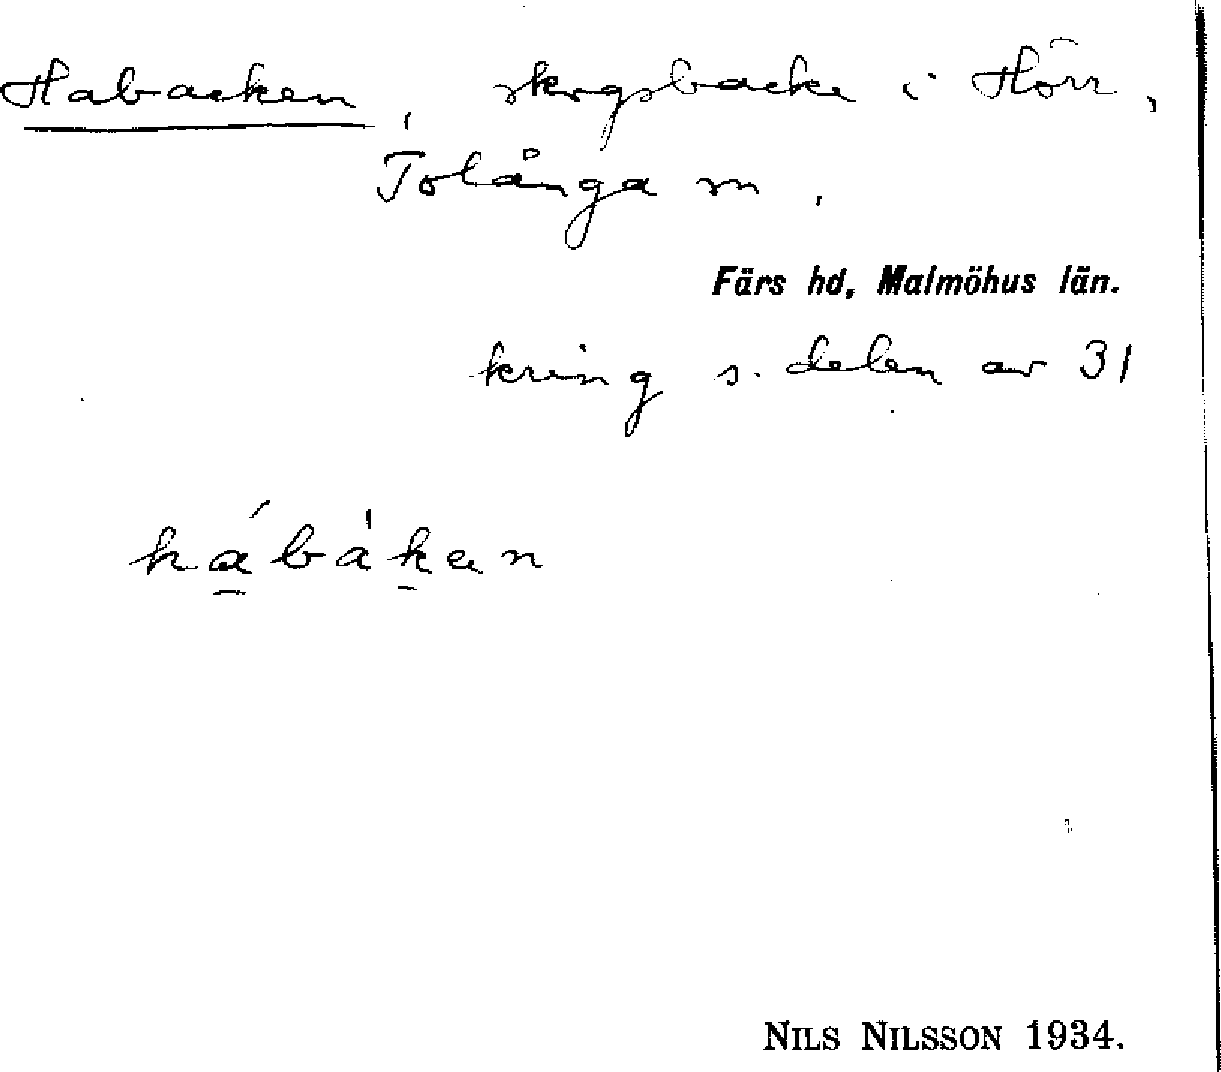 Habacken, skogsbacke i Hörr,
Tolånga sn.
Färs hd, Malmöhus län.
kring s. delen av 31
NILS NILSSON 1934.